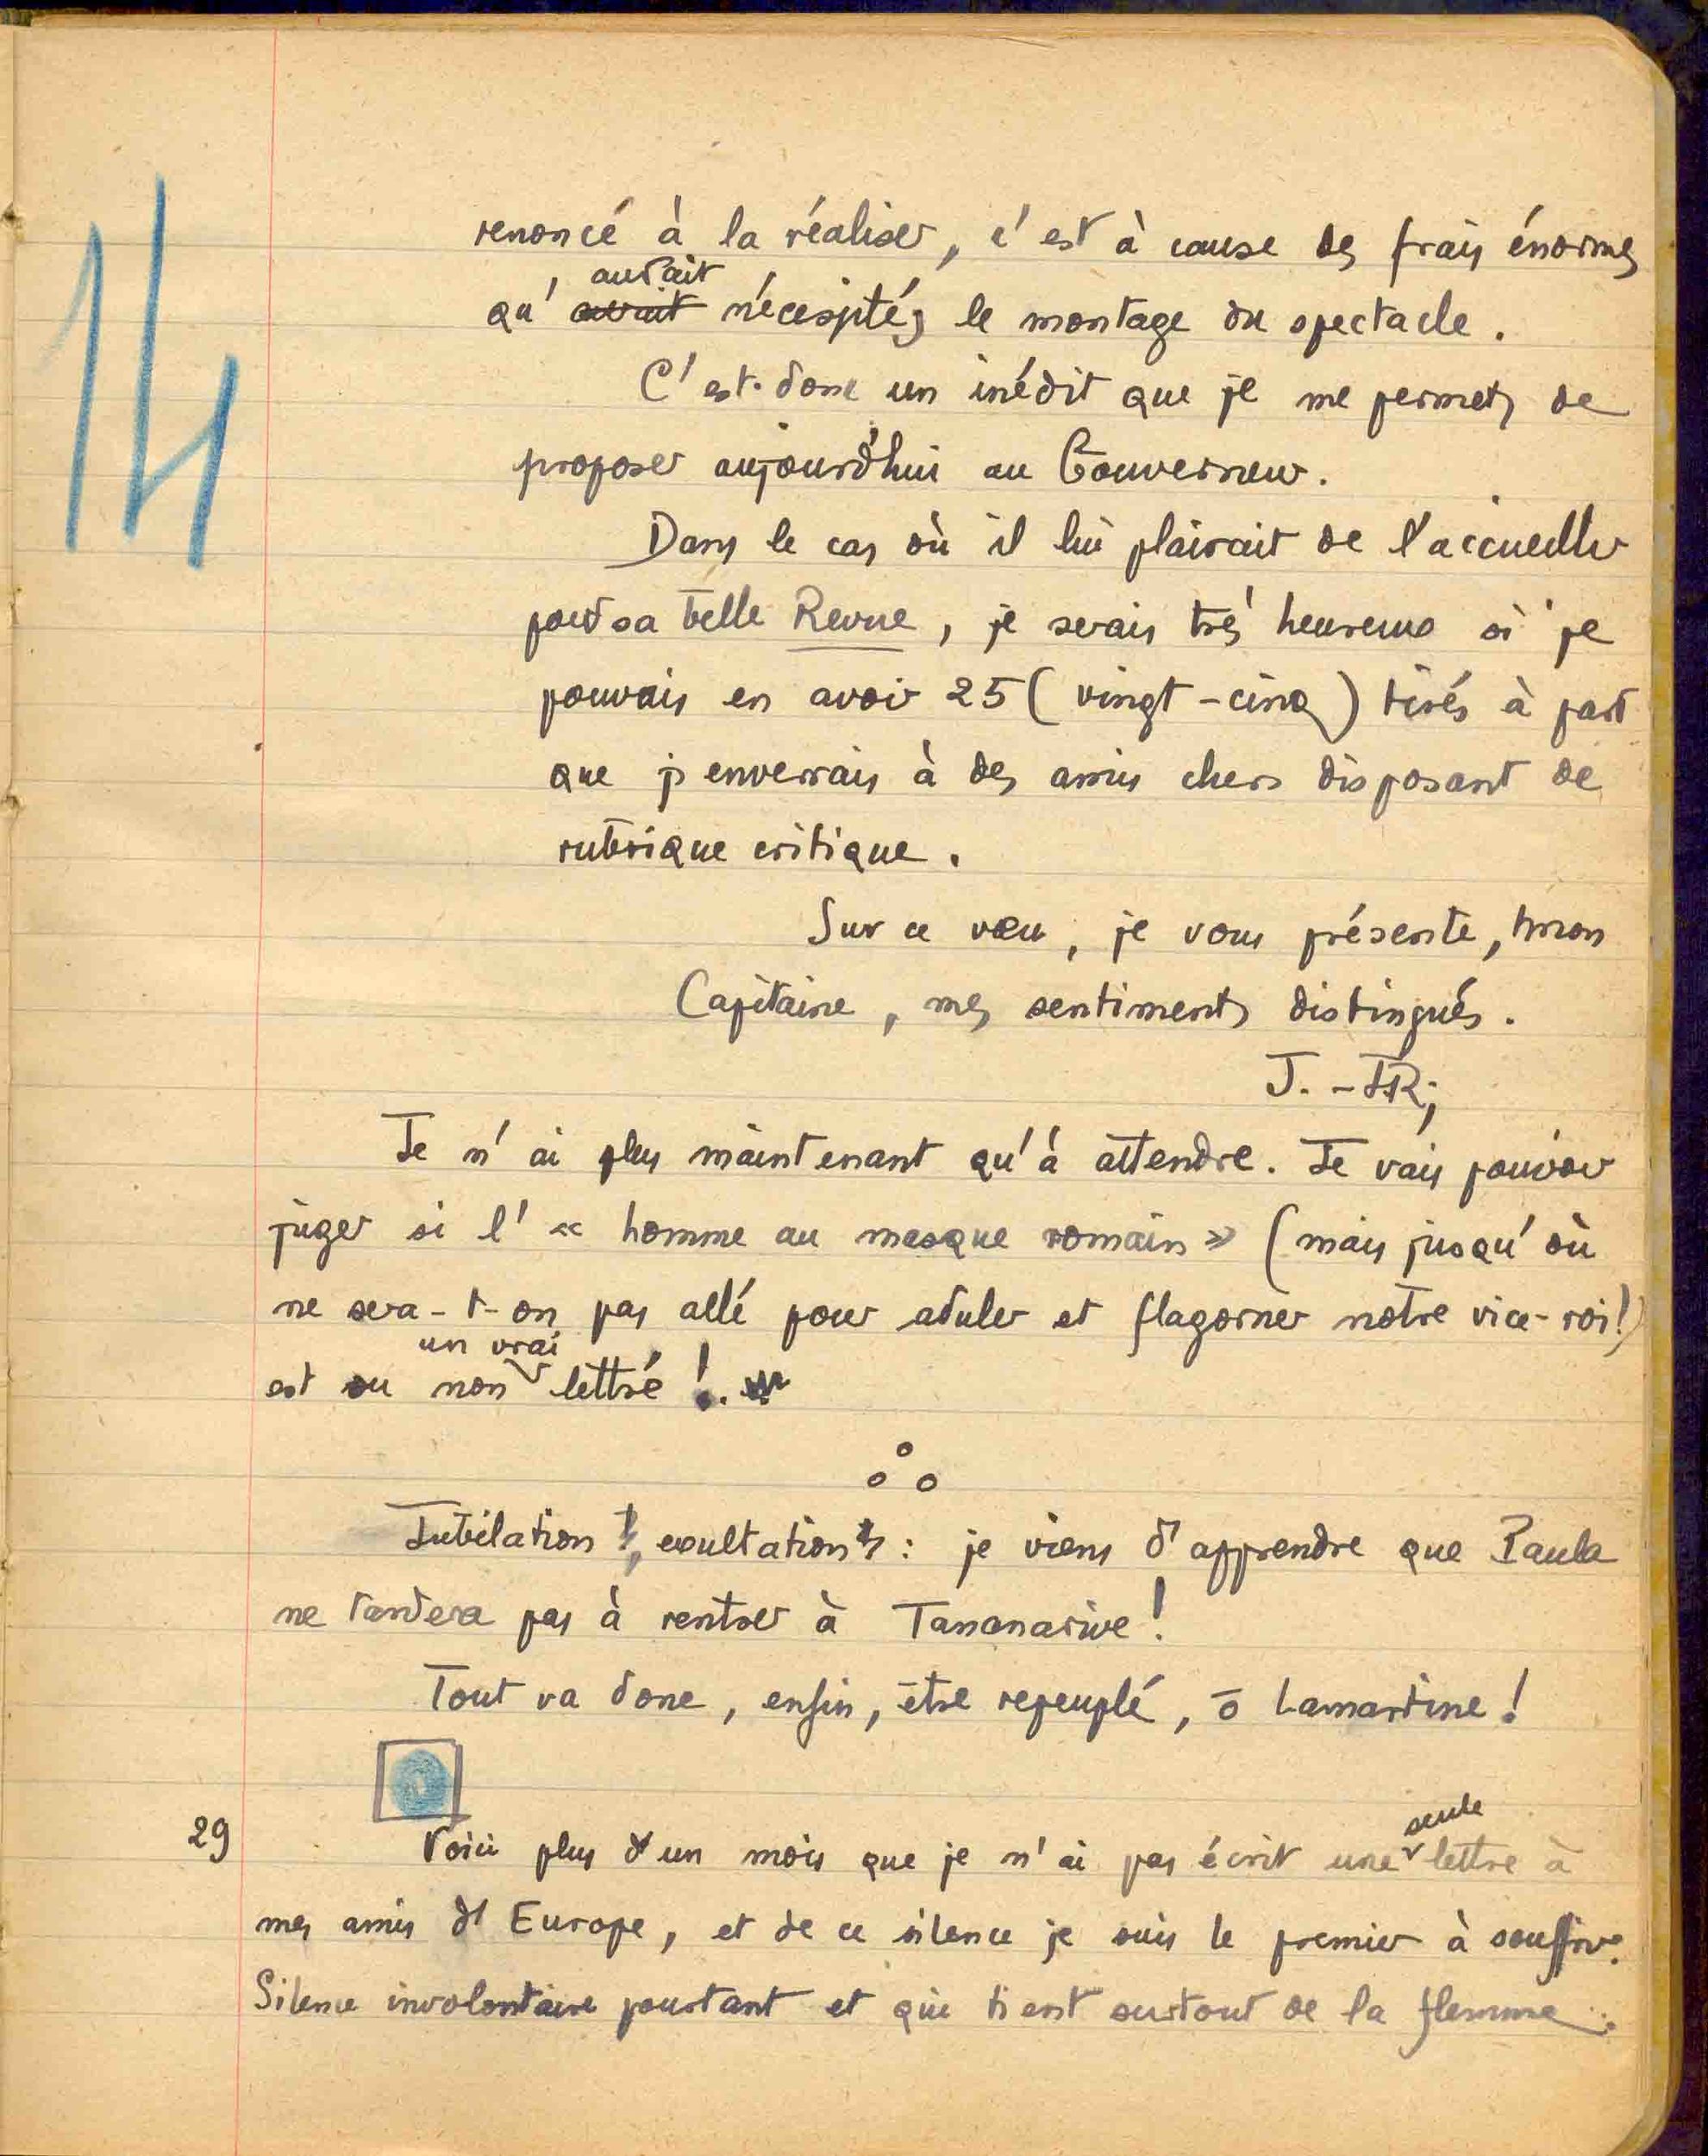 14
renoncé à la réaliser, c'est à cause des frais énormes
aurait
qu' avait nécessités le montage du spectacle.
C'est donc un inédit que je me permets de
proposer aujourd'hui au Gouverneur.
Dans le cas où il lui plairait de l'accueillir
pour sa belle Revue, je serais très heureux si je
pouvais en avoir 25 (vingt-cinq) tirés à part
que j'enverrais à des amis chers disposant de
rubrique critique.
Sur ce vœu, je vous présente, mon
Capitaine, mes sentiments distingués.
J.-J.R;
Je n'ai plus maintenant qu'à attendre. Je vais pouvoir
juger si l' « homme au masque romain » (mais jusqu'où
ne sera-t-on pas allé pour aduler et flagorner notre vice-roi!)
un vrai
est ou non lettré !.
Jubilation, exultation : je viens d'apprendre que Paula
ne tardera pas à rentrer à Tananarive!
Tout va donc, enfin, être repeuplé, ô Lamartine!
seule
29 Voici plus d'un mois que je n'ai pas écrit une lettre à
mes amis d'Europe, et de ce silence je suis le premier à souffrir.
Silence involontaire pourtant et qui tient surtout de la flemme.